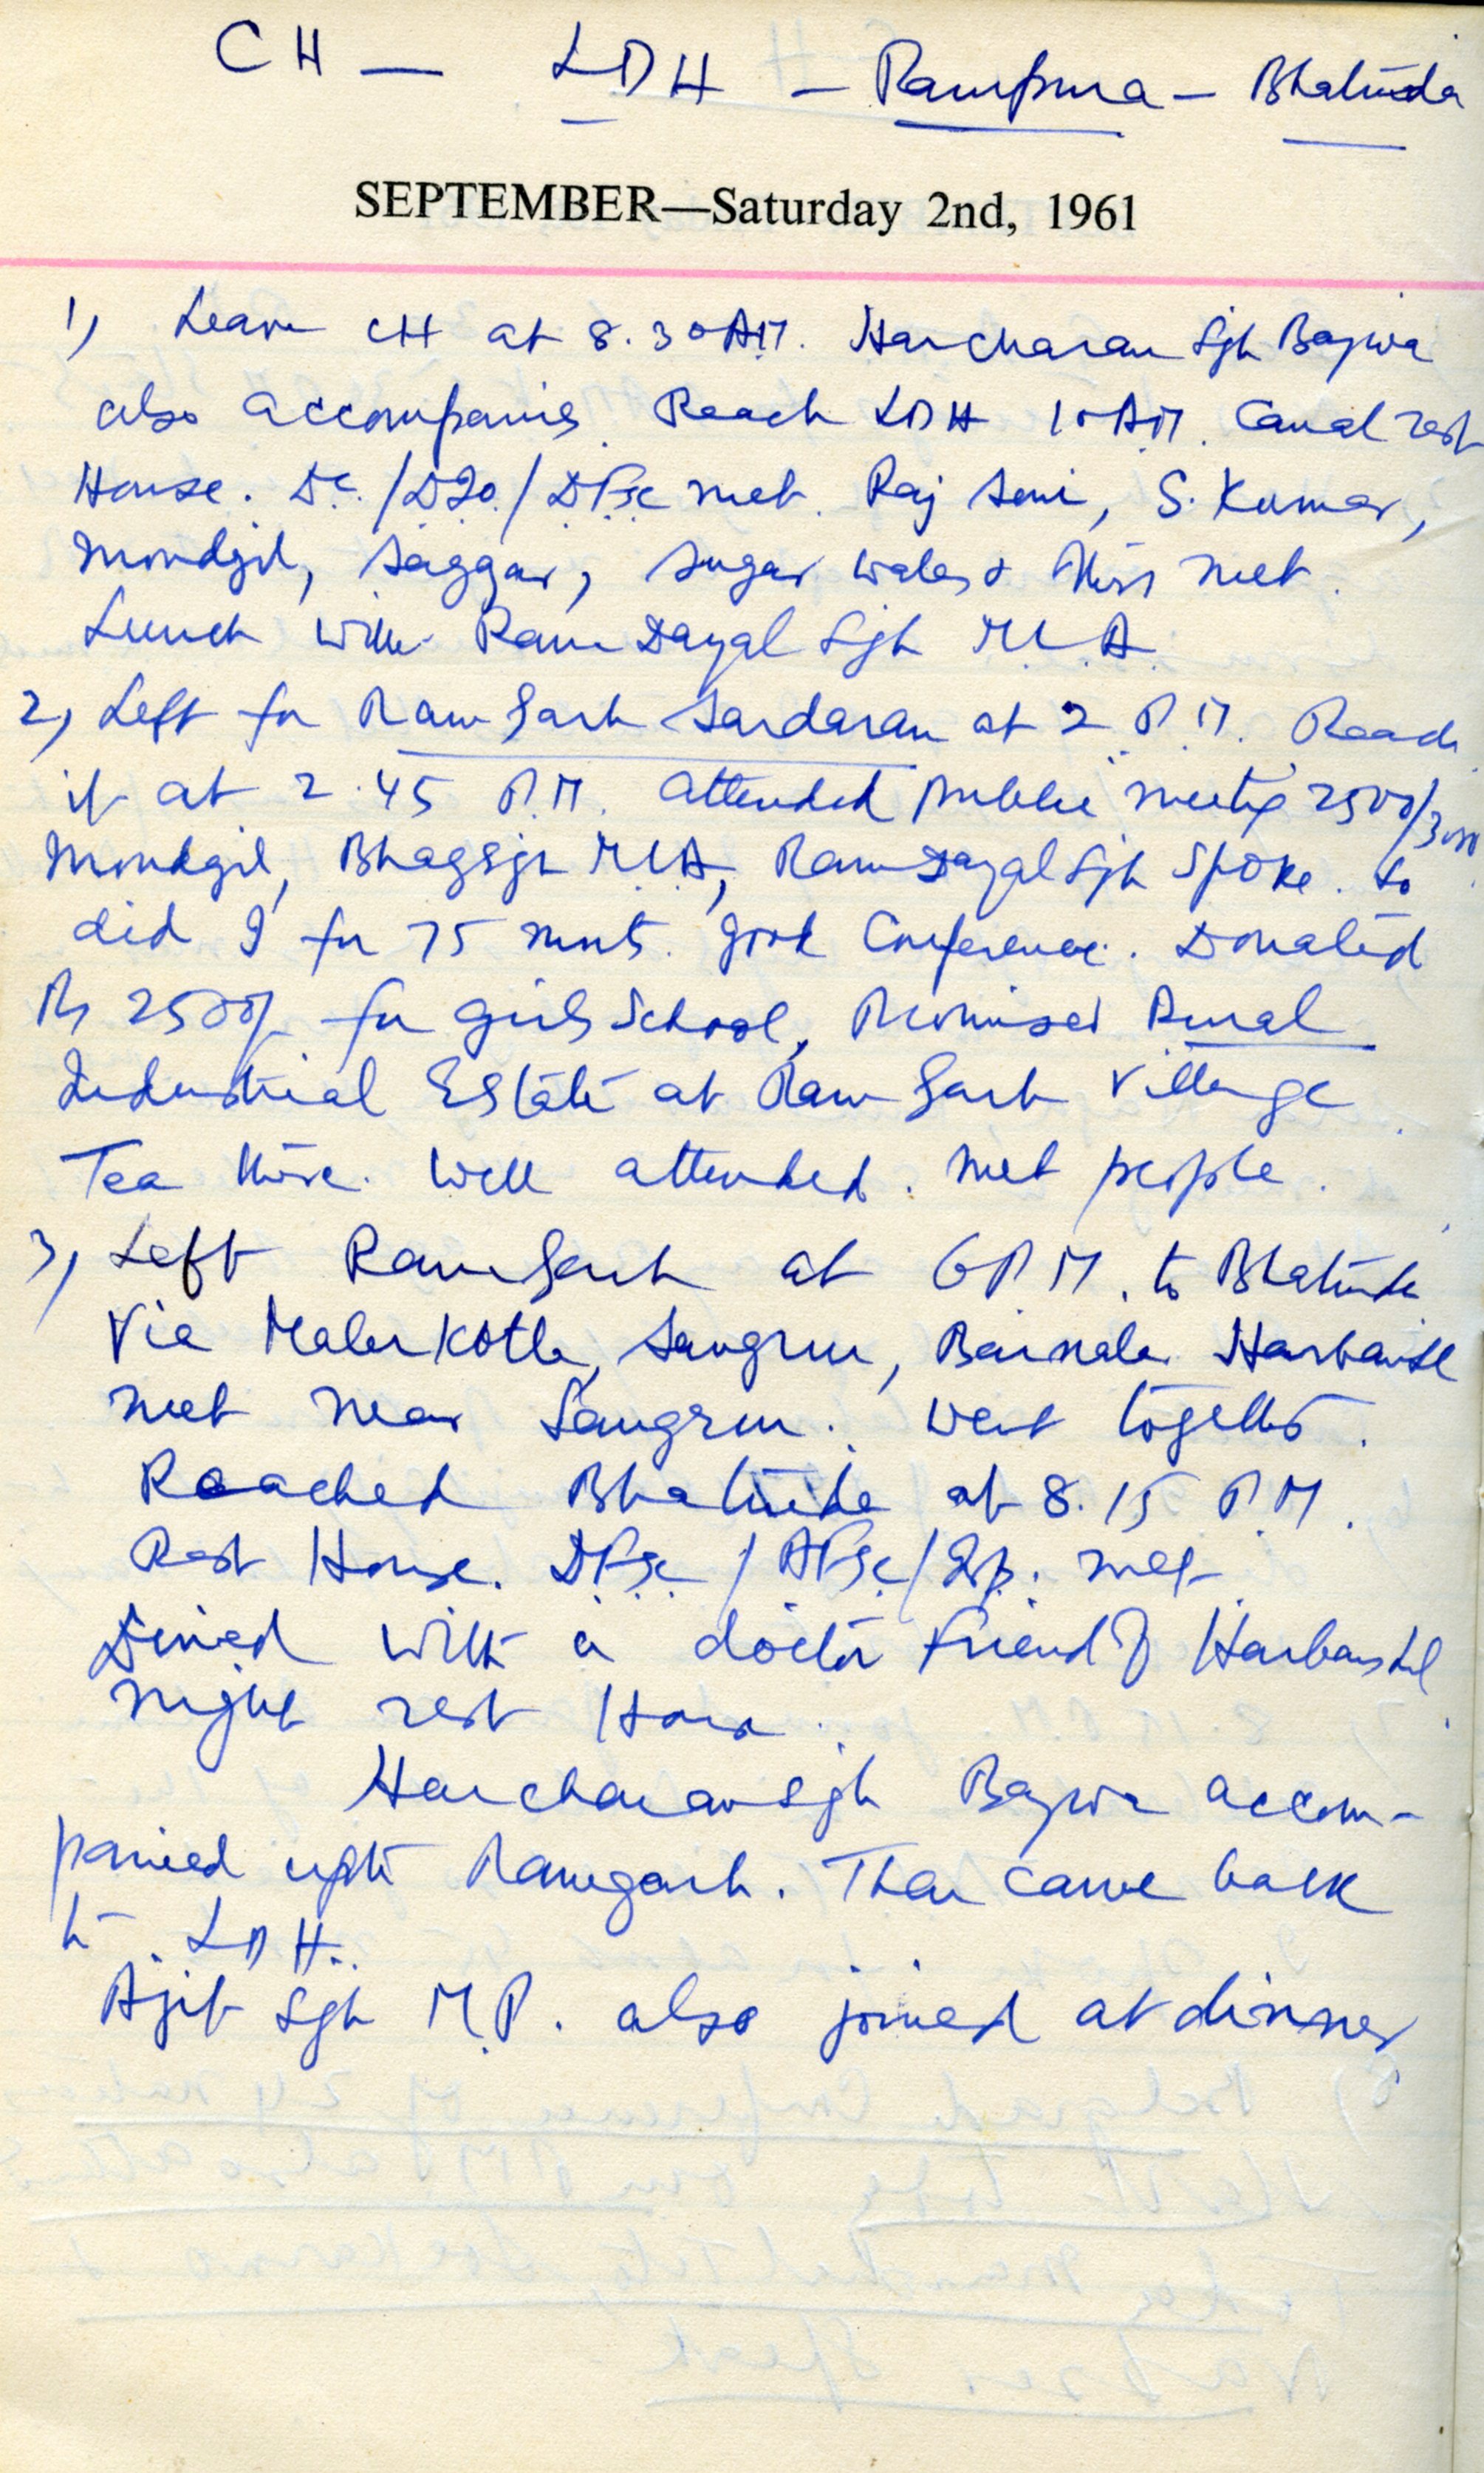 CH — LDH — Rampura — Bhatinda
SEPTEMBER—Saturday 2nd, 1961
1) Leave CH at 8.30 AM. Harcharan Sgh Bajwa
also accompanies. Reach LDH 10 AM. Canal rest
House. DC./DIO./DPSC met. Raj Soni, S. Kumar,
Moudgil, Saggar, Sugar walas & others met.
Lunch with Ram Dayal Sgh MLA
2) Left for Ramgarh Sardaran at 2 P.M. Reach
it at 2.45 P.M. attended public meeting 2500/3000
Moudgil, Bhag Sgh M.L.A, Ram Dayal Sgh Spoke. So
did I for 75 mnts. good Conference. Donated
Rs 2500/- for girls School, Promised Rural
Industrial Estate at Ramgarh Village
Tea there. Well attended. met people.
3) Left Ramgarh at 6 P.M. to Bhatinda
Via Maler Kotla, Sangrur, Barnala. Harbans Lal
met near Sangrur. went together.
Reached Bhatinda at 8.15 P.M.
Rest House. DPSC/APSC/ met
Dined with a doctor friend of Harbans Lal
night rest House.
Harcharan Sgh Bajwa accom-
panied upto Ramgarh. Then came back
to LDH.
Ajit Sgh M.P. also joined at dinner